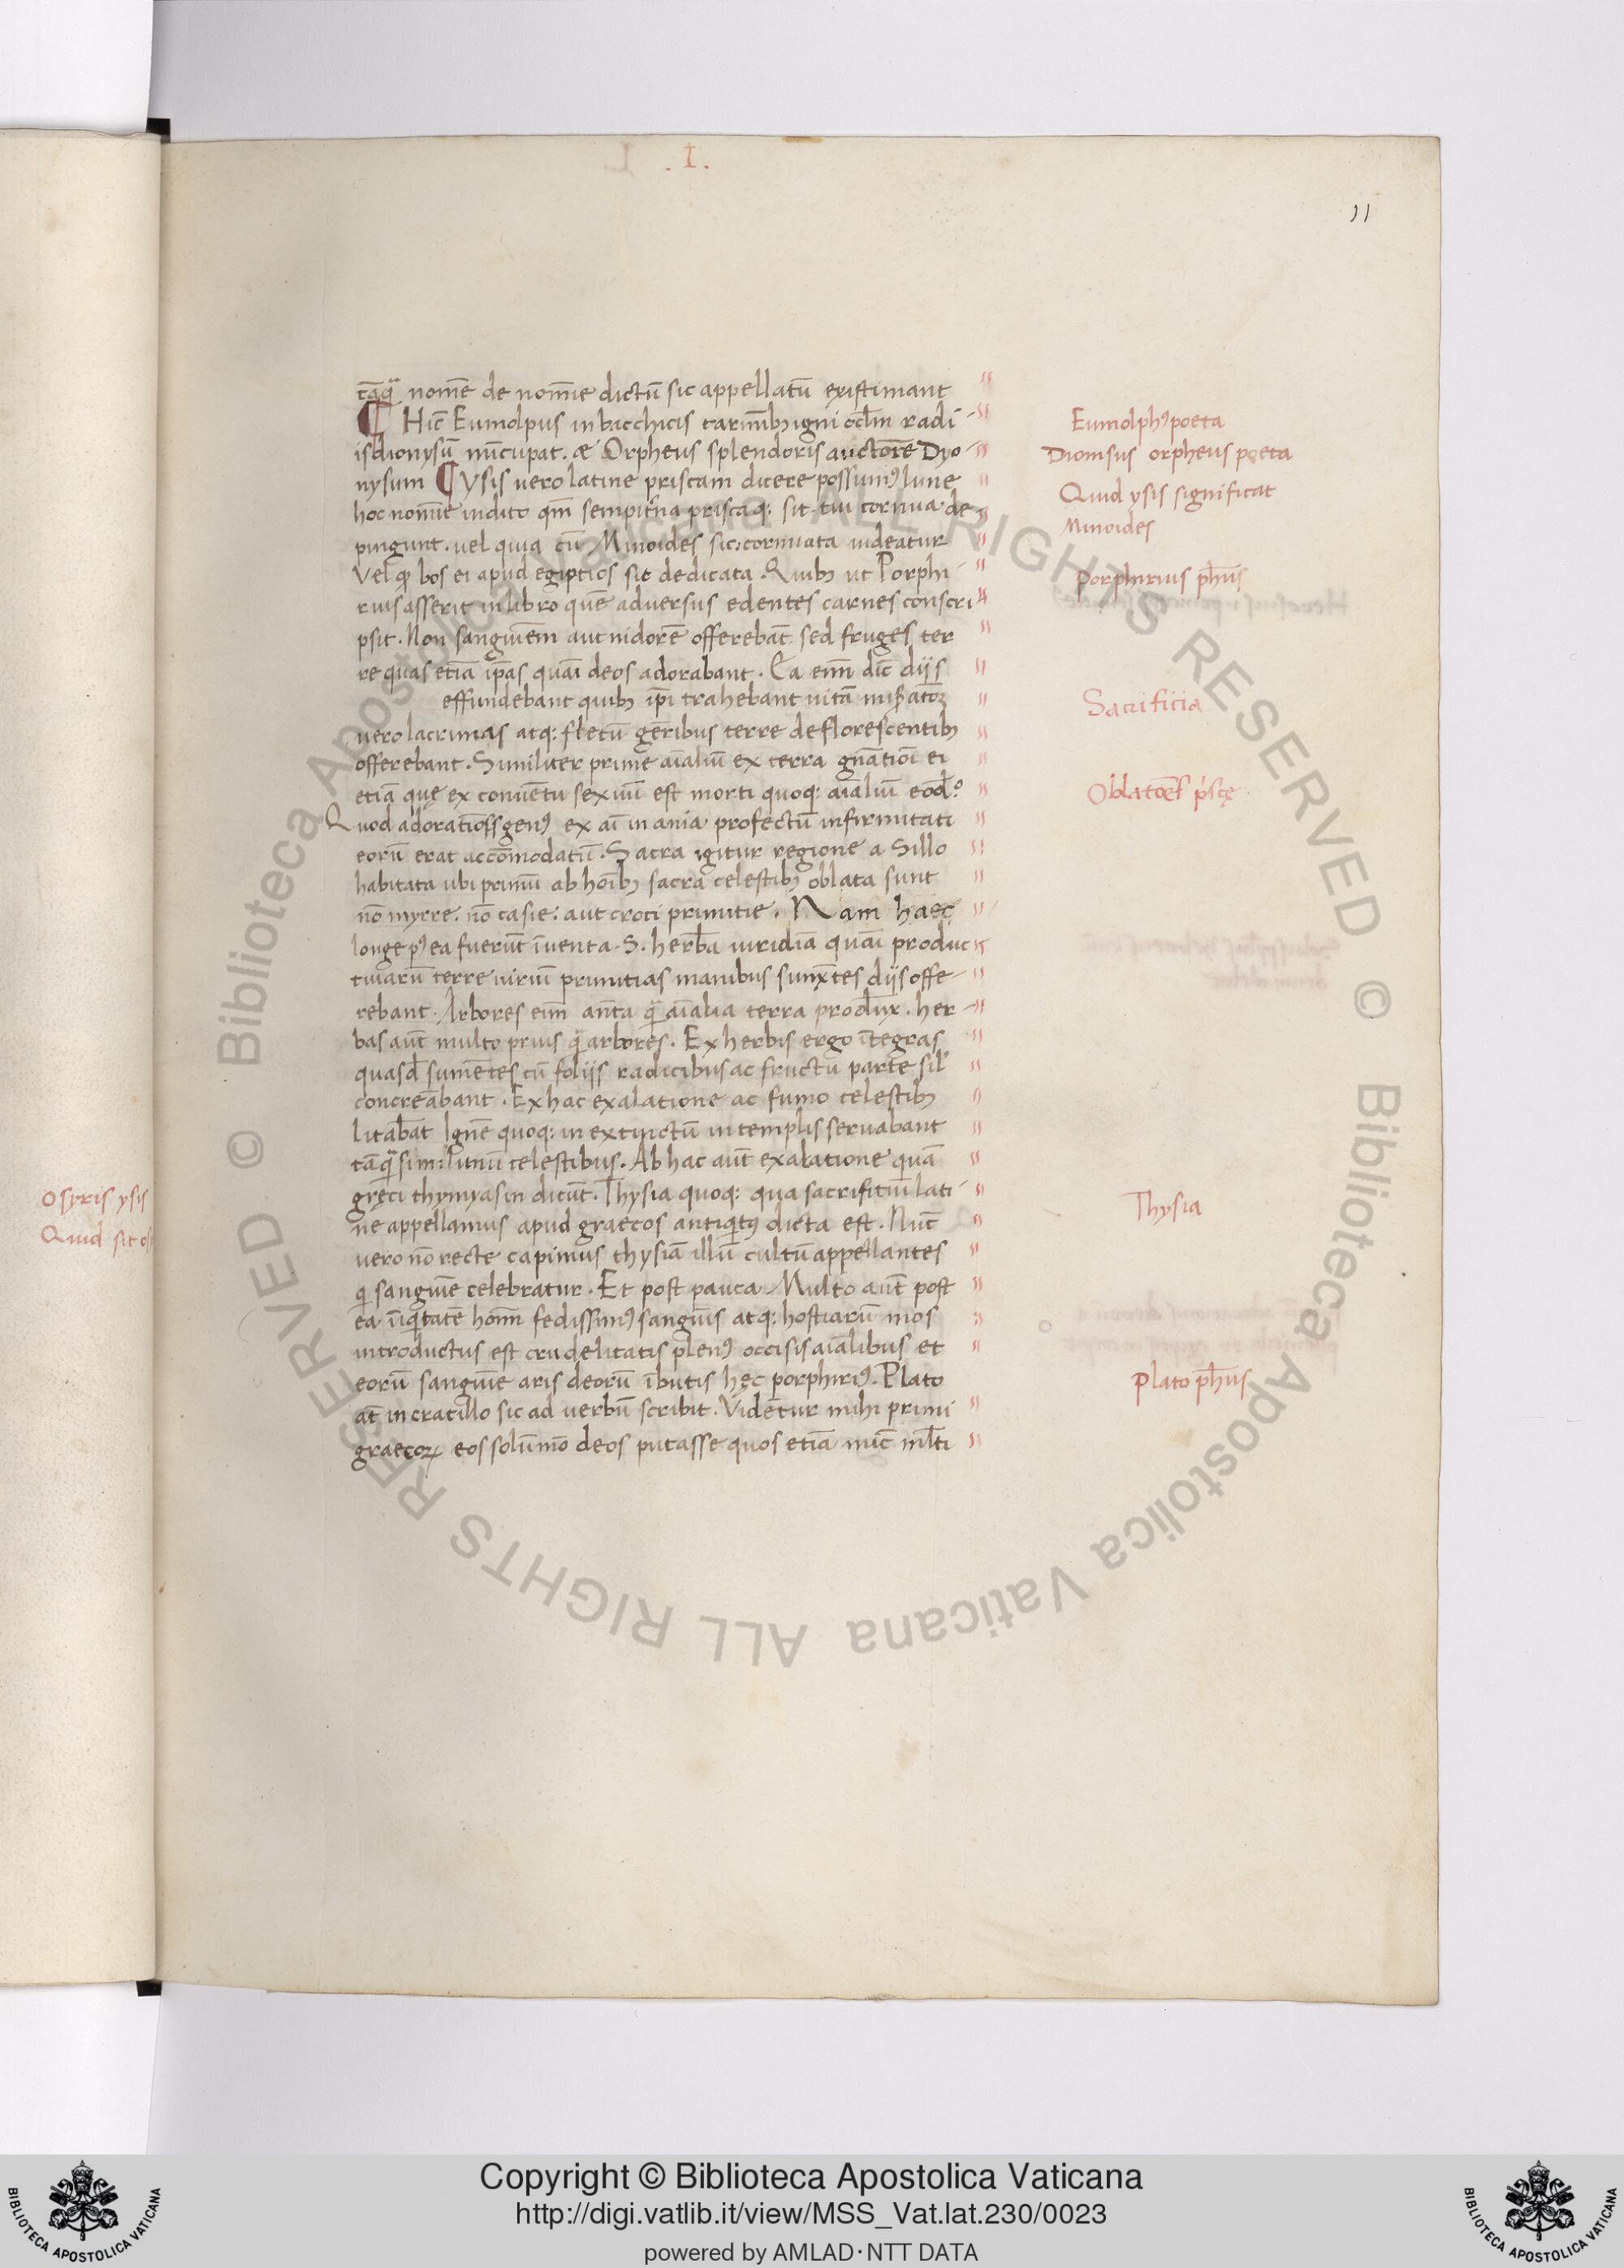 L .I.
11
tāqᷓ nomē de noīe dictū sic appellatū existimant
¶ Hic̄ Eumolpus in bacchicis carmībꝫ igni ocl̄m radi-
is dionysū nūcupat. æ Orpheus splendoris auctorē Dyo-
nysum ¶ Ysis uero latine priscam dicere possumꝰ lune
hoc nomīe indito qm̄ sempit̄na priscaqꝫ sit. cui cornua de-
pingunt. uel quia cū Minoides sit: cornuata uideatur
Vel qꝫ bos ei apud egiptios sit dedicata. Quibꝫ ut Porphi-
rius asserit in libro quē aduersus edentes carnes conscri-
psit. Non sanguinēm aut nidorē offerebāt sed fruges ter
re quas etiā ip̄as quāi deos adorabant. Ea eīm dic̄ dijs
effundebant quibꝫ ip̄i trahebant uitā
uero lacrimas atqꝫ fletū gēribus terre deflorescentibꝫ
offerebant. Similiter prime aīaliū ex terra gn̄atiōi ei
etiā quę ex conuentu sexuū est morti quoqꝫ aīaliū eod̄º
Quod adoratiōis genꝰ ex aī in ania profectū infirmitati
eorū erat accōmodatū. Sacra igitur regione a Sillo
habitata ubi primū ab hoībꝫ sacra celestibꝫ oblata sunt
nō myrre. nō casie. aut croci primitie. Nam haec
longe pꝰ ea fuerūt īuenta. S. herbā uiridiā quāi produc
tiuarū terre uiriū primitias manibus sum̄tes dijs offe-
rebant. Arbores eīm an̄ta qᷓ aīalia terra produx̄. her-
bas aūt multo prius qᷓ arbores. Ex herbis ergo ītegras
quasd̄ sumētes cū folijs radicibus ac fructu parte sil̄
concreābant. Ex hac exalatione ac fumo celestibꝫ
litabāt Ignē quoqꝫ inextinctū in templis seruabant
tāqᷓ simillimū celestibus. Ab hac aūt exalatione quā
gręci thymyasin dicūt. Thysia quoqꝫ qua sacrifitiū lati-
ne appellamus apud graecos antiqͥtꝰ dicta est. Nūc
uero nō recte capimus thysiā illū cultū appellantes
qͥ sanguīe celebratur. Et post pauca. Multo aūt post
ea īiqͥtatē hoīm fedissimꝰ sanguīs atqꝫ hostiarū mos
introductus est crudelitatis plenꝰ occisis aīalibus et
eorū sanguīe aris deorū ībutis hęc porphiriꝰ. Plato
at̄ in cratillo sic ad uerbū scribit. Videntur mihi primi
graecoꝝ eos solūmō deos putasse quos etiā nūc ml̄ti
Eumolphꝰ poeta
Dionisus orpheus poeta
Quid ysis significat
Minoides
Porphirius ph̄us
Sacrificia
Oblatoēs p̓scę
Thysia
Plato ph̄us
Osyris ysis
Quid sit os
© Biblioteca Apostolica Vaticana ALL RIGHTS RESERVED © Biblioteca Apostolica Vaticana ALL RIGHTS RESERVED
BIBLIOTECA APOSTOLICA VATICANA
Copyright © Biblioteca Apostolica Vaticana
http://digi.vatlib.it/view/MSS_Vat.lat.230/0023
powered by AMLAD·NTT DATA
BIBLIOTECA APOSTOLICA VATICANA